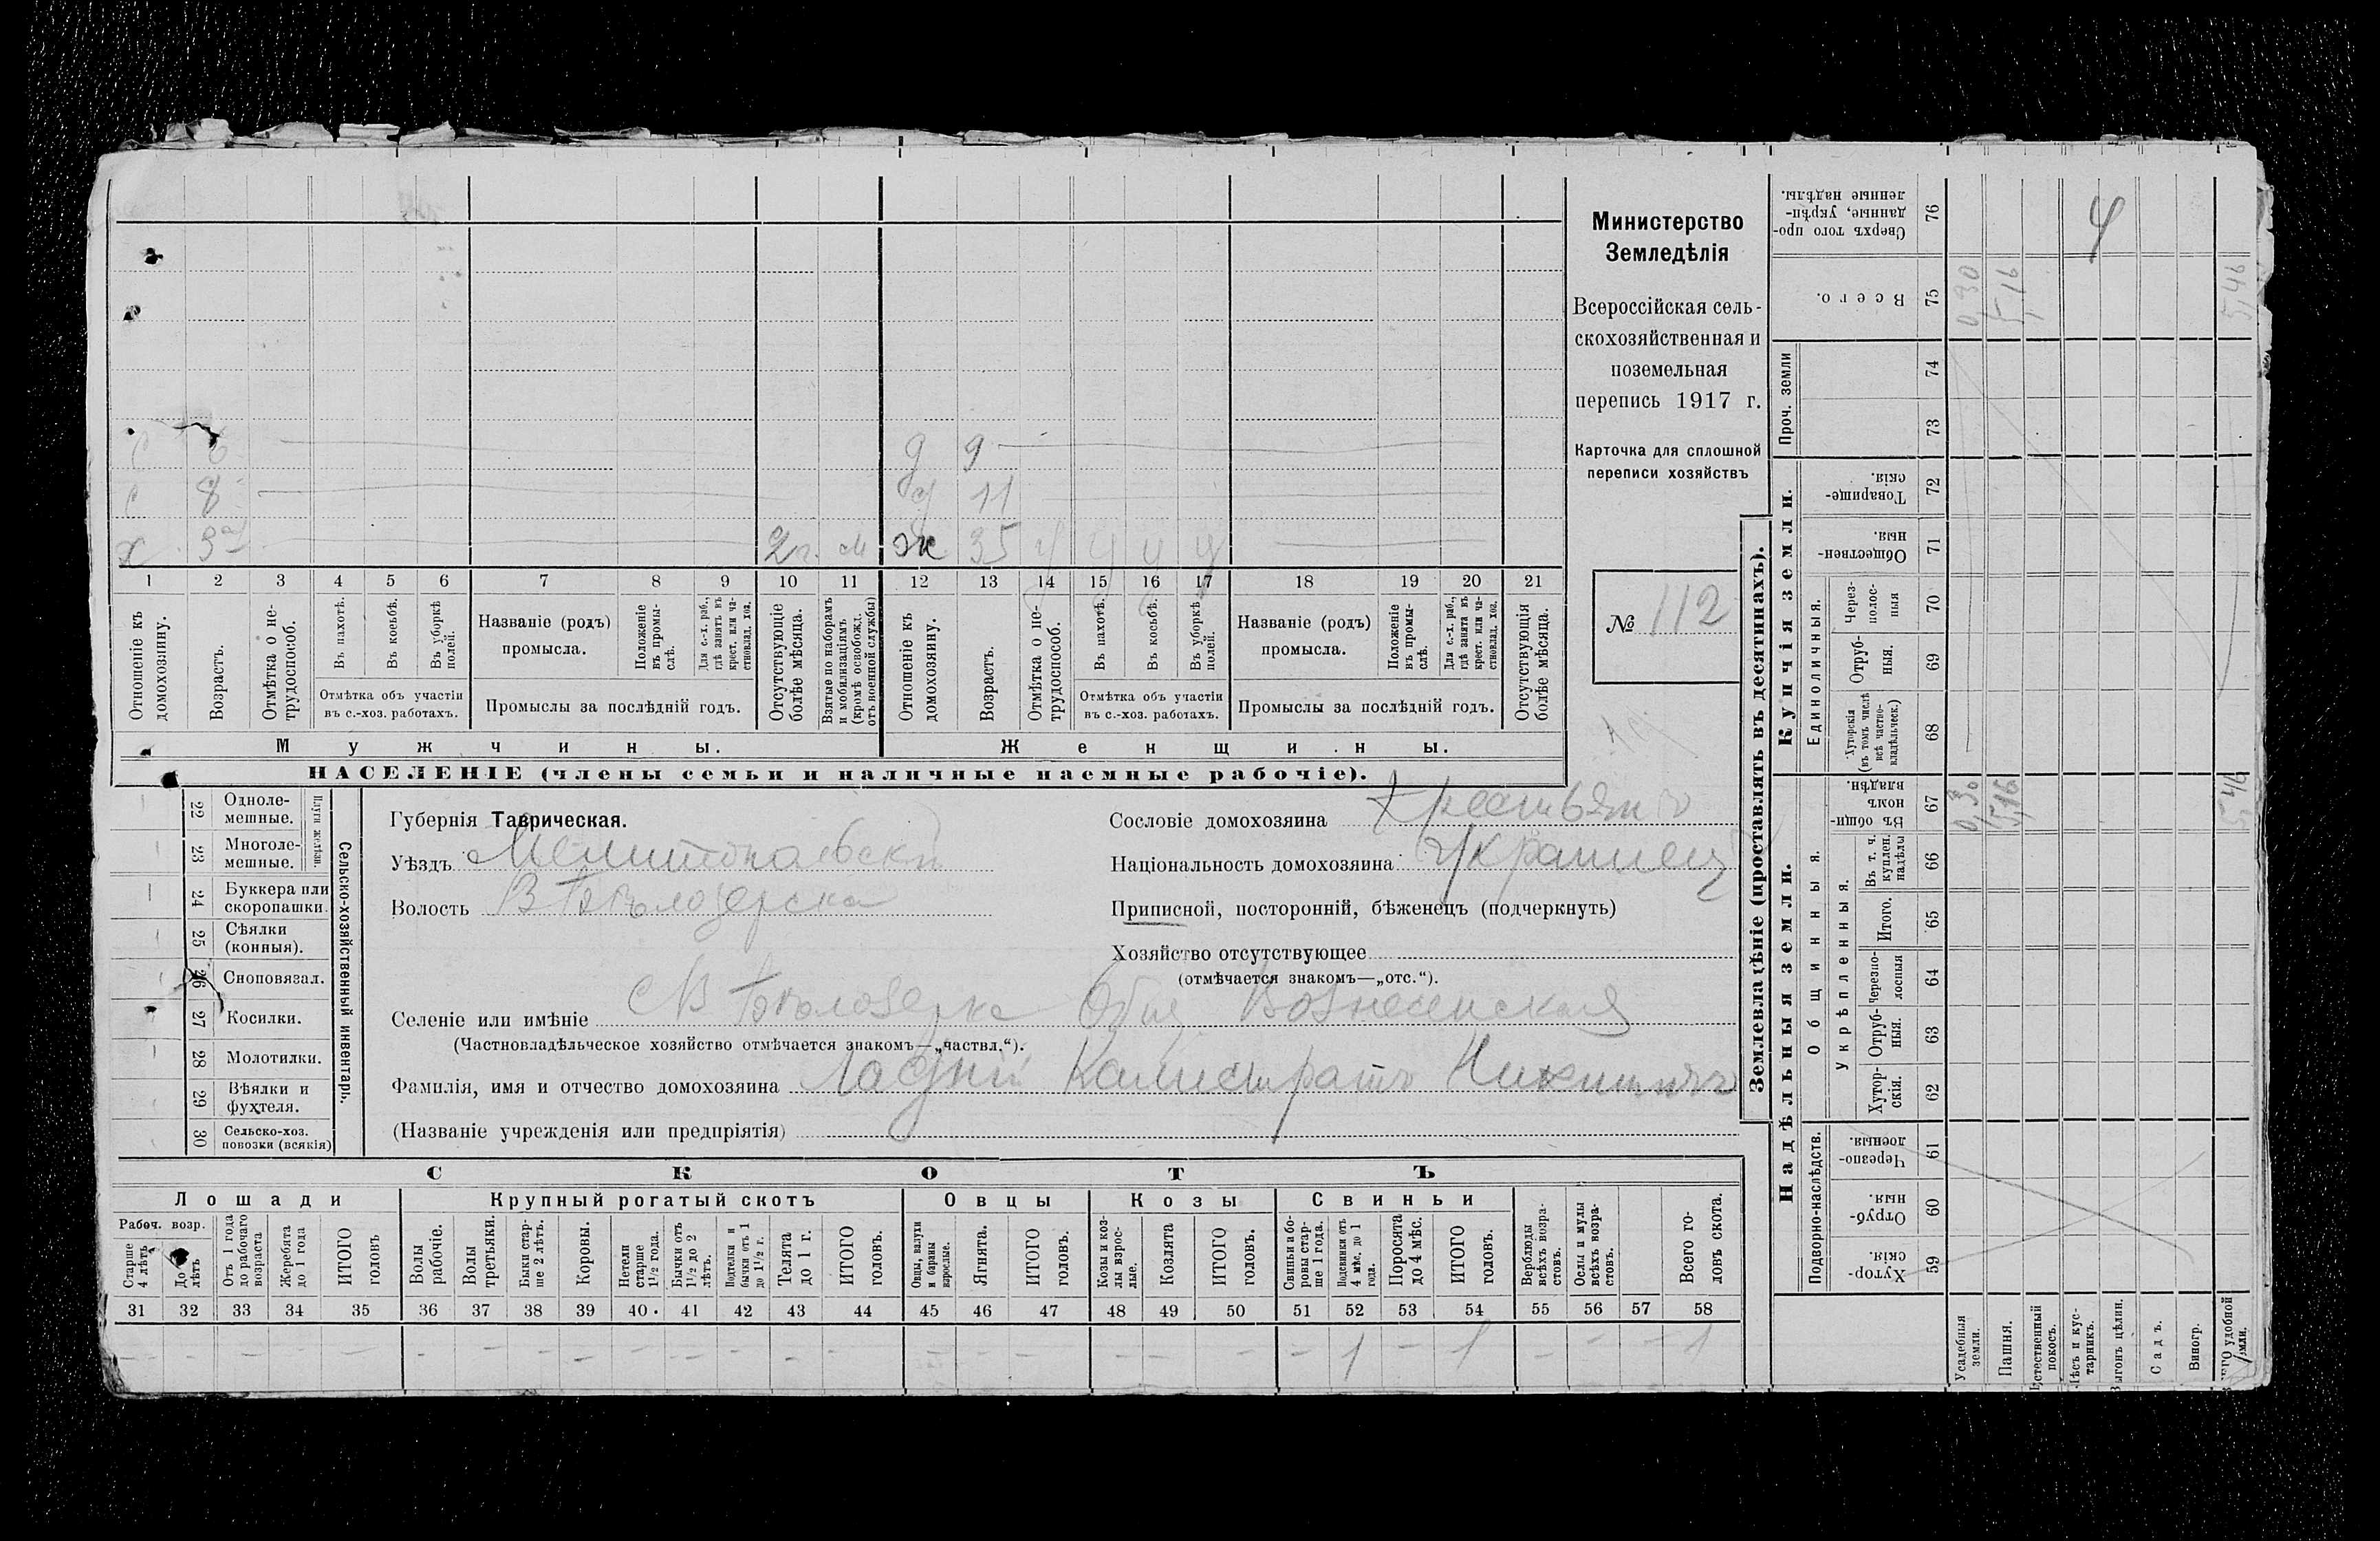 Министерство
Земледѣлія
Всероссійская сель-
скохозяйственная и
поземельная
перепись 1917 г.
Карточка для сплошной
переписи хозяйствъ
№ 112
д 9
с 8 д 11
х 2 г. м ж 35 у у у у
1 2 3 4 5 6 7 8 9 10 11 12 13 14 15 16 17 18 19 20 21
Отношеніе къ домохозяину.
Возрастъ.
Отмѣтка о не-трудоспособ.
Въ пахотѣ.
Въ косьбѣ.
Въ уборкѣ полей.
Отмѣтка объ участіи
въ с.-хоз. работахъ.
Названіе (родъ)
промысла.
Положеніе въ промы-слѣ.
Для с.-х. раб., гдѣ занятъ въ крест. или ча-стновлад. хоз.
Промыслы за послѣдній годъ.
Отсутствующіе болѣе мѣсяца.
Взятые по наборамъ и мобилизаціямъ (кромѣ освобожд. отъ военной службы)
Отношеніе къ домохозяину.
Возрастъ.
Отмѣтка о не-трудоспособ.
Въ пахотѣ.
Въ косьбѣ.
Въ уборкѣ полей.
Отмѣтка объ участіи
въ с.-хоз. работахъ.
Названіе (родъ)
промысла.
Положеніе въ промы-слѣ.
Для с.-х. раб., гдѣ занята въ крест. или ча-стновлад. хоз.
Промыслы за послѣдній годъ.
Отсутствующія болѣе мѣсяца.
Мужчины.
Женщины.
НАСЕЛЕНІЕ (члены семьи и наличные наемные рабочіе).
Сельско-хозяйственный инвентарь.
Плуги желѣзн.
22 Одноле-мешные.
23 Многоле-мешные.
24 Буккера или скоропашки.
25 Сѣялки (конныя).
26 Сноповязал.
27 Косилки.
28 Молотилки.
29 Вѣялки и фухтеля.
30 Сельско-хоз. повозки (всякія)
Губернія Таврическая.
Уѣздъ Мелитопольскій
Волость В Бѣлозерска
Сословіе домохозяина крестьянинъ
Національность домохозяина Украинец
Приписной, посторонній, бѣженецъ (подчеркнуть)
Хозяйство отсутствующее
(отмѣчается знакомъ—„отс.“).
Селеніе или имѣніе С В Бѣлозерка Общ. Вознесенская
(Частновладѣльческое хозяйство отмѣчается знакомъ—„частвл.“).
Фамилія, имя и отчество домохозяина Ладный Калистратъ Никитичъ
(Названіе учрежденія или предпріятія)
СКОТЪ
Лошади
Рабоч. возр.
Старше 4 лѣтъ
До 4 лѣтъ
Отъ 1 года до рабочаго возраста
Жеребята до 1 года
ИТОГО головъ
Крупный рогатый скотъ
Волы рабочіе.
Волы третьяки.
Быки стар-ше 2 лѣтъ.
Коровы.
Нетели старше 1½ года.
Бычки отъ 1½ до 2 лѣтъ.
Подтелки и бычки отъ 1 до 1½ г.
Телята до 1 г.
ИТОГО головъ.
Овцы
Овцы, валухи и бараны взрослые.
Ягнята.
ИТОГО головъ.
Козы
Козы и коз-лы взрос-лые.
Козлята
ИТОГО головъ.
Свиньи
Свиньи и бо-ровы стар-ше 1 года.
Подсвинки отъ 4 мѣс. до 1 года.
Поросята до 4 мѣс.
ИТОГО головъ.
Верблюды всѣхъ возра-стовъ.
Ослы и мулы всѣхъ возра-стовъ.
Всего го-ловъ скота.
31 32 33 34 35 36 37 38 39 40 41 42 43 44 45 46 47 48 49 50 51 52 53 54 55 56 57 58
– – – – – – – – – – – – – – – – – – – – – 1 – 1 – – – 1
Землевладѣніе (проставлять въ десятинахъ).
Надѣльныя земли.
Подворно-наслѣдств.
Хутор-скія. 59
Отруб-ныя. 60
Черезпо-лосныя. 61
Общинныя.
Укрѣпленныя.
Хутор-скія. 62
Отруб-ныя. 63
Черезпо-лосныя 64
Итого. 65
Въ т. ч. куплен. надѣлы 66
Въ общин-номъ владѣн. 67
0,30
5,16
5,46
Купчія земли.
Единоличныя.
Хуторскія (въ томъ числѣ всѣ частно-владѣльческ.) 68
Отруб-ныя. 69
Через-полос-ныя 70
Обществен-ныя. 71
Товарище-скія. 72
Проч. земли
73
74
Всего. 75
0,30
5,16
5,46
Сверхъ того про-данные, укрѣп-ленные надѣлы. 76
4
Усадебныя земли.
Пашня.
Естественный покосъ.
Лѣсъ и кус-тарникъ.
Выгонъ цѣлин.
Садъ.
Виногр.
удобной земли.